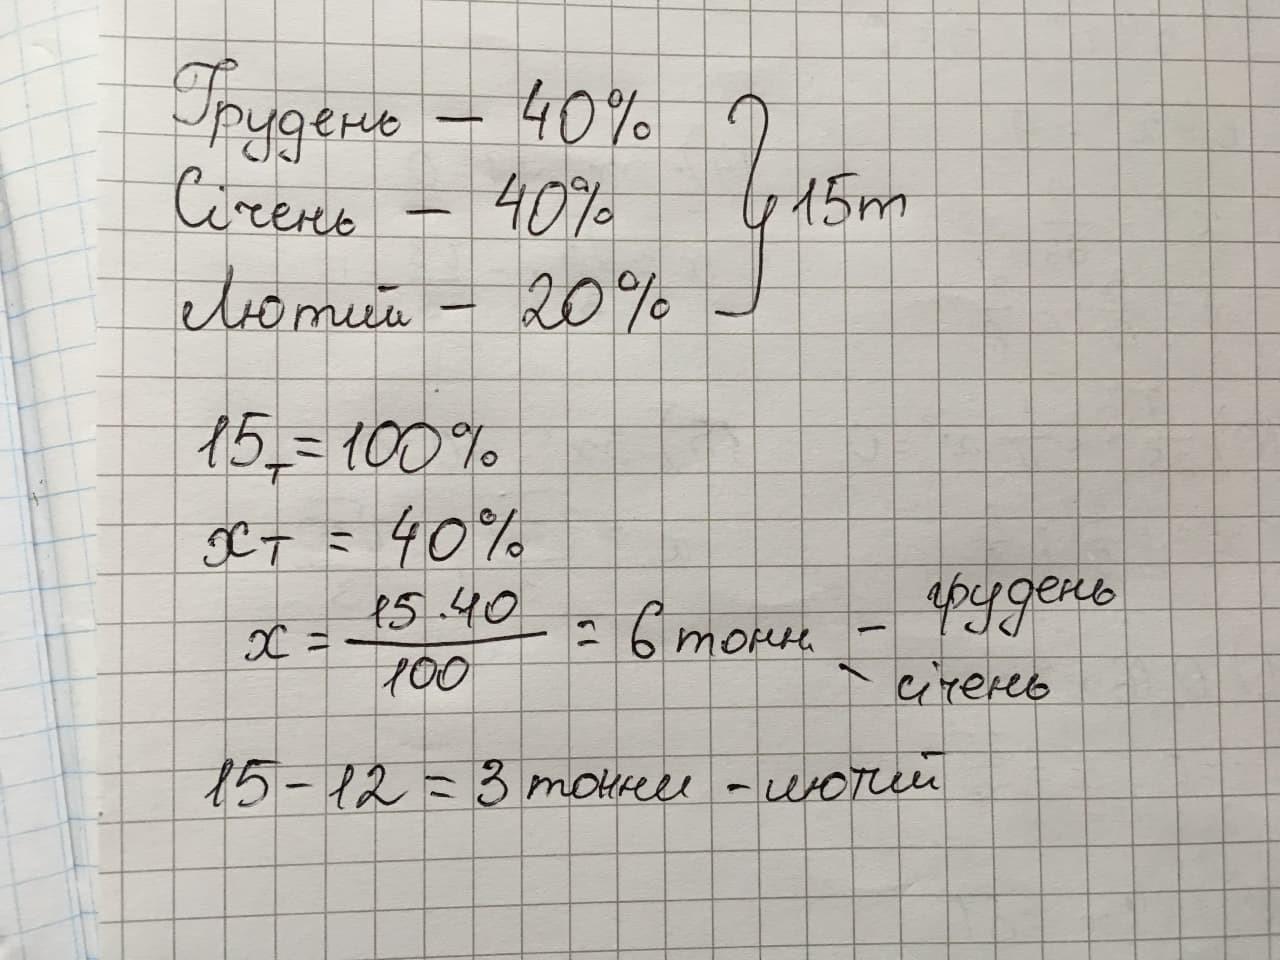 Грудень - 40%
Січень - 40% } 15т
Лютий - 20%
15т = 100%
xт = 40%
x = 15·40/100 = 6 тонн - грудень
- січень
15-12 = 3 тонни - лютий